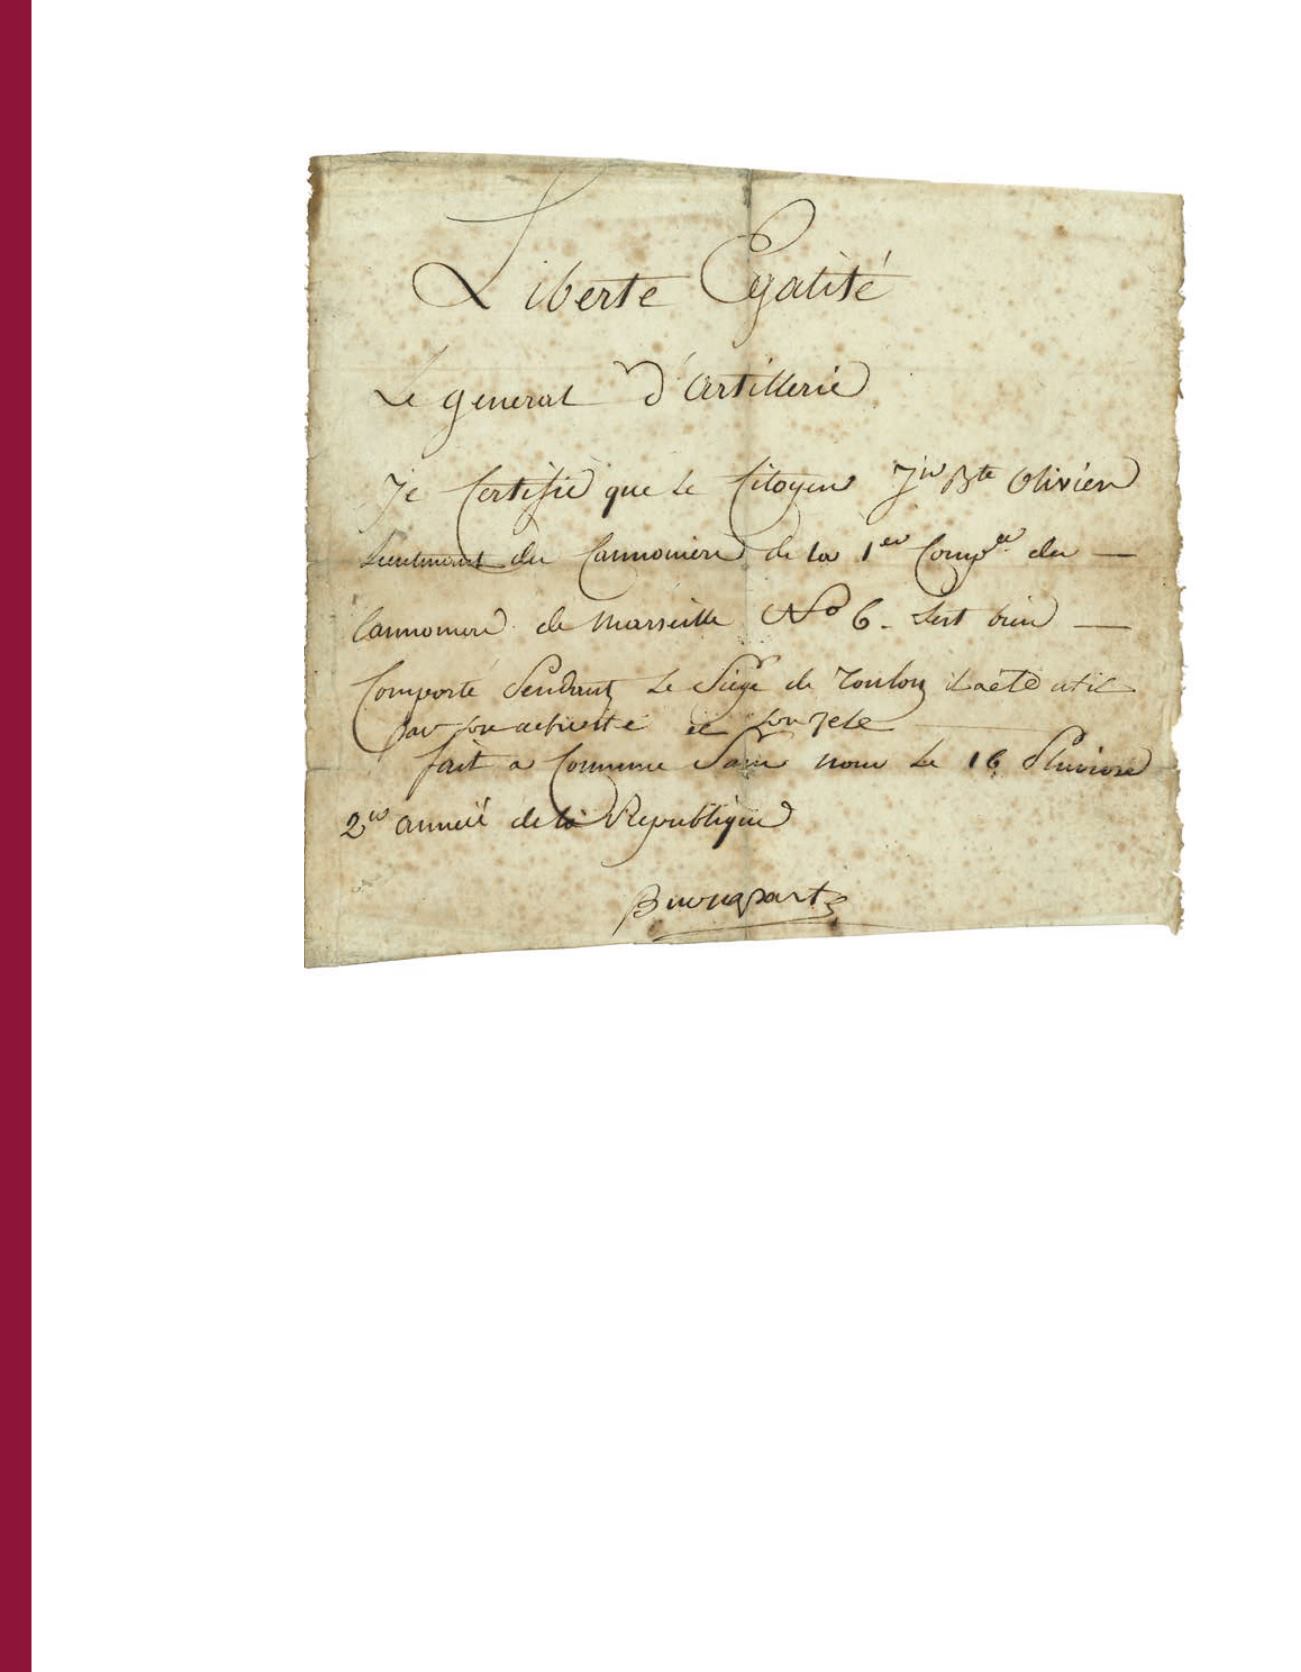 Liberte Egalité
Le general d'artillerie
Je Certifie que le Citoyen Jn Bte Olivier
Lieutenant du Cannonier de la 1er Compie du —
Cannonier de Marseille No 6. Sest bien —
Comporté Pendant Le Siege de Toulon il a été util
par son activité et son zele
fait a Commune Sans nom le 16 Pluviose
2e année de la Republique
Buonaparte